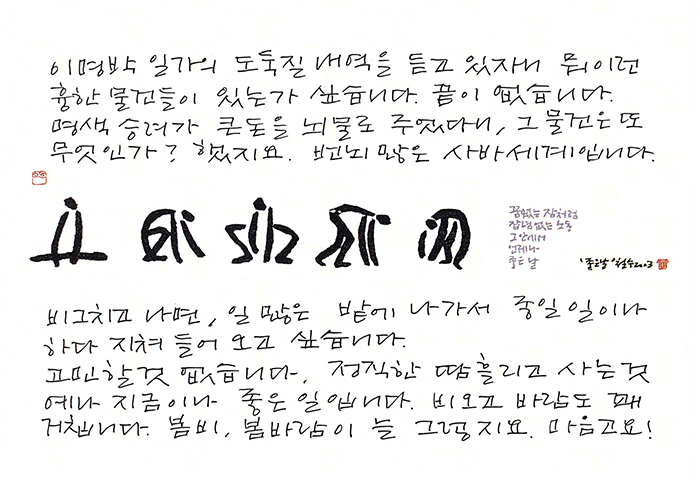 이명박 일가의 도둑질 내역을 듣고 있자니 뭐 이런
흉한 물건들이 있는가 싶습니다. 끝이 없습니다.
명색 승려가 큰돈을 뇌물로 주었다니, 그 물건은 또
무엇인가? 했지요. 번뇌 많은 사바세계입니다.
꿈없는 잠처럼
잡념 없는 노동
그 안에서
언제나
좋은 날
'좋은날' 철수 2003
비그치고 나면, 일 많은 밭에 나가서 종일 일이나
하다 지쳐 들어 오고 싶습니다.
고민할것 없습니다. 정직한 땀 흘리고 사는 것
예나 지금이나 좋은 일입니다. 비오고 바람도 꽤
거칩니다. 봄비, 봄바람이 늘 그렇지요. 마음고요!